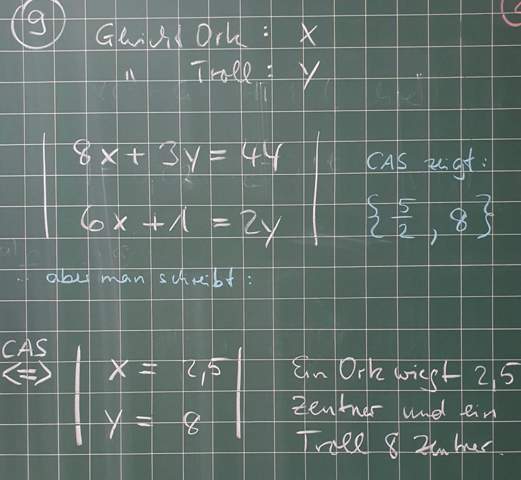 9
Gewicht Ork : X
" Troll : y
8x + 3y = 44
6x + 1 = 2y
CAS zeigt :
{5/2, 8}
... aber man schreibt :
CAS
<=>
x = 2,5
y = 8
Ein Ork wiegt 2,5
Zentner und ein
Troll 8 Zentner.